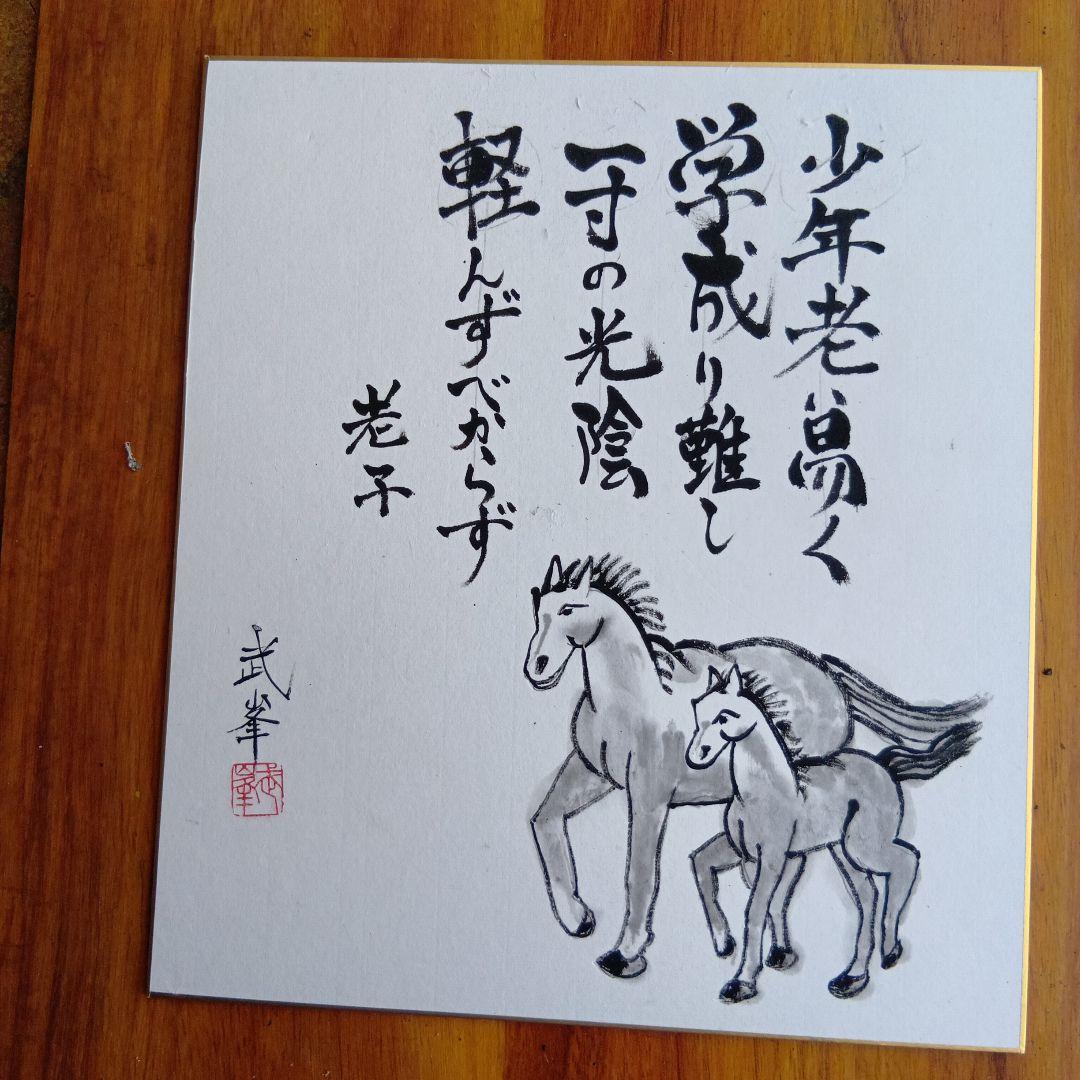 少年老い易く
学成り難し
一寸の光陰
軽んずべからず
老子
武峯
武峯